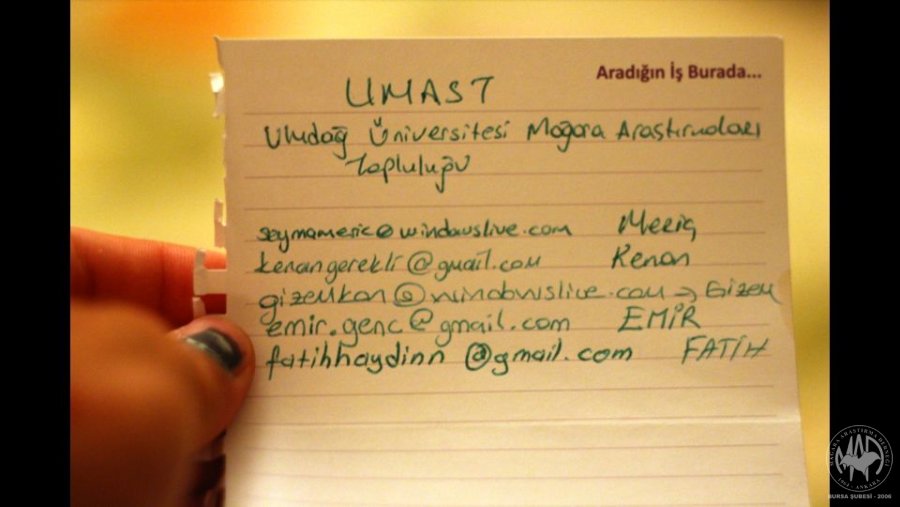 Aradığın İş Burada...
UMAST
Uludağ Üniversitesi Mağara Araştırmaları
Topluluğu
seymameric@windowslive.com Meriç
kenangerekli@gmail.com Kenan
gizemkan@windowslive.com → Gizem
emir.genc@gmail.com EMİR
fatihhaydinn@gmail.com FATİH
MAĞARA ARAŞTIRMA DERNEĞİ
MAD
1964 - ANKARA
BURSA ŞUBESİ - 2006